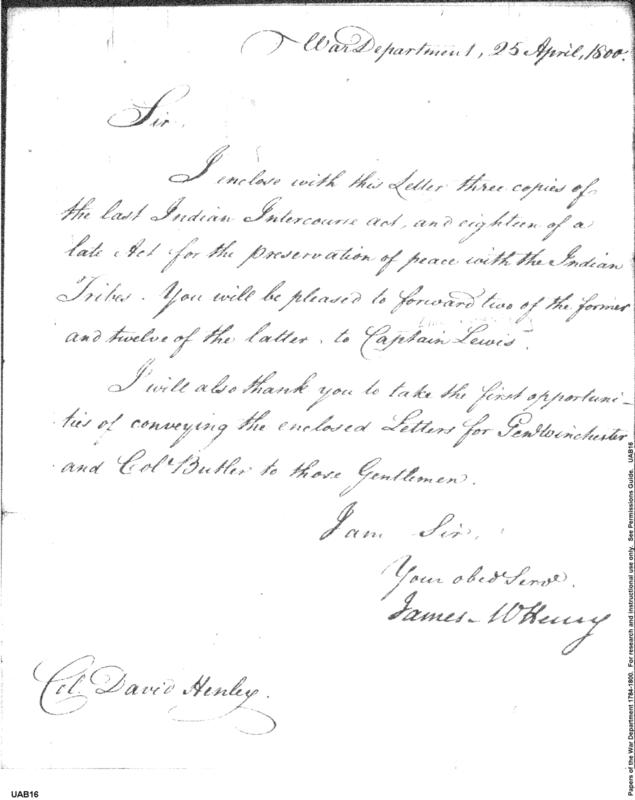 War Department, 25 April, 1800.
Sir.
I enclose with this Letter three copies of
the last Indian Intercourse act, and eighteen of a
late Act for the preservation of peace with the Indian
Tribes. You will be pleased to forward two of the former
and twelve of the latter, to Captain Lewis.
I will also thank you to take the first opportuni-
ties of conveying the enclosed Letters for Genl Winchester
and Col Butler to those Gentlemen.
I am Sir.
Your obed Servt.
James McHenry
Col. David Henley.
UAB16
Papers of the War Department 1784-1800. For research and instructional use only. See Permissions Guide. UAB16